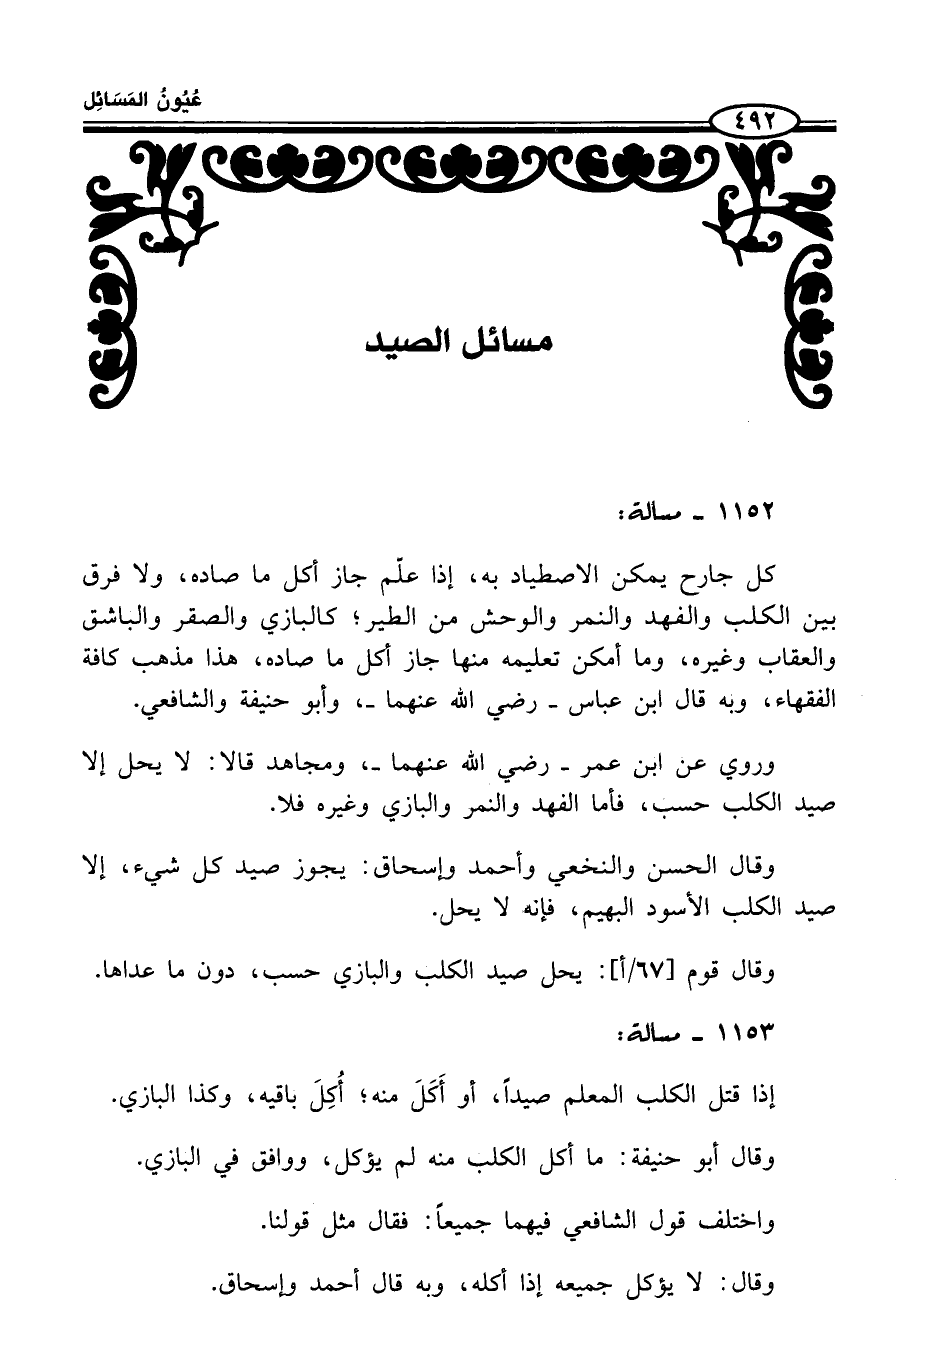 عُيُونُ المَسَائِل
٤٩٢
مسائل الصيد
١١٥٢ ـ مسالة:
كل جارح يمكن الاصطياد به، إذا علّم جاز أكل ما صاده، ولا فرق
بين الكلب والفهد والنمر والوحش من الطير؛ كالبازي والصقر والباشق
والعقاب وغيره، وما أمكن تعليمه منها جاز أكل ما صاده، هذا مذهب كافة
الفقهاء، وبه قال ابن عباس ـ رضي الله عنهما ـ، وأبو حنيفة والشافعي.
وروي عن ابن عمر ـ رضي الله عنهما ـ، ومجاهد قالا: لا يحل إلا
صيد الكلب حسب، فأما الفهد والنمر والبازي وغيره فلا.
وقال الحسن والنخعي وأحمد وإسحاق: يجوز صيد كل شيء، إلا
صيد الكلب الأسود البهيم، فإنه لا يحل.
وقال قوم [٦٧/أ]: يحل صيد الكلب والبازي حسب، دون ما عداها.
١١٥٣ ـ مسالة:
إذا قتل الكلب المعلم صيداً، أو أَكَلَ منه؛ أُكِلَ باقيه، وكذا البازي.
وقال أبو حنيفة: ما أكل الكلب منه لم يؤكل، ووافق في البازي.
واختلف قول الشافعي فيهما جميعاً: فقال مثل قولنا.
وقال: لا يؤكل جميعه إذا أكله، وبه قال أحمد وإسحاق.